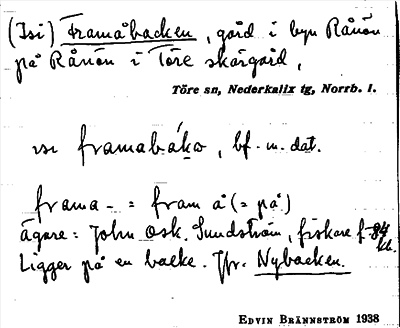 (Isi) Framåbacken, gård i byn Rånön
på Rånön i Töre skärgård,
Töre sn, Nederkalix tg, Norrb. l.
framabák , bf. m. dat.
frama- = fram å (= på)
ägare: John Osk. Sundström, fiskare f. 84
Ligger på en backe. Jfr. Nybacken.
EDVIN BRÄNNSTRÖM 1938